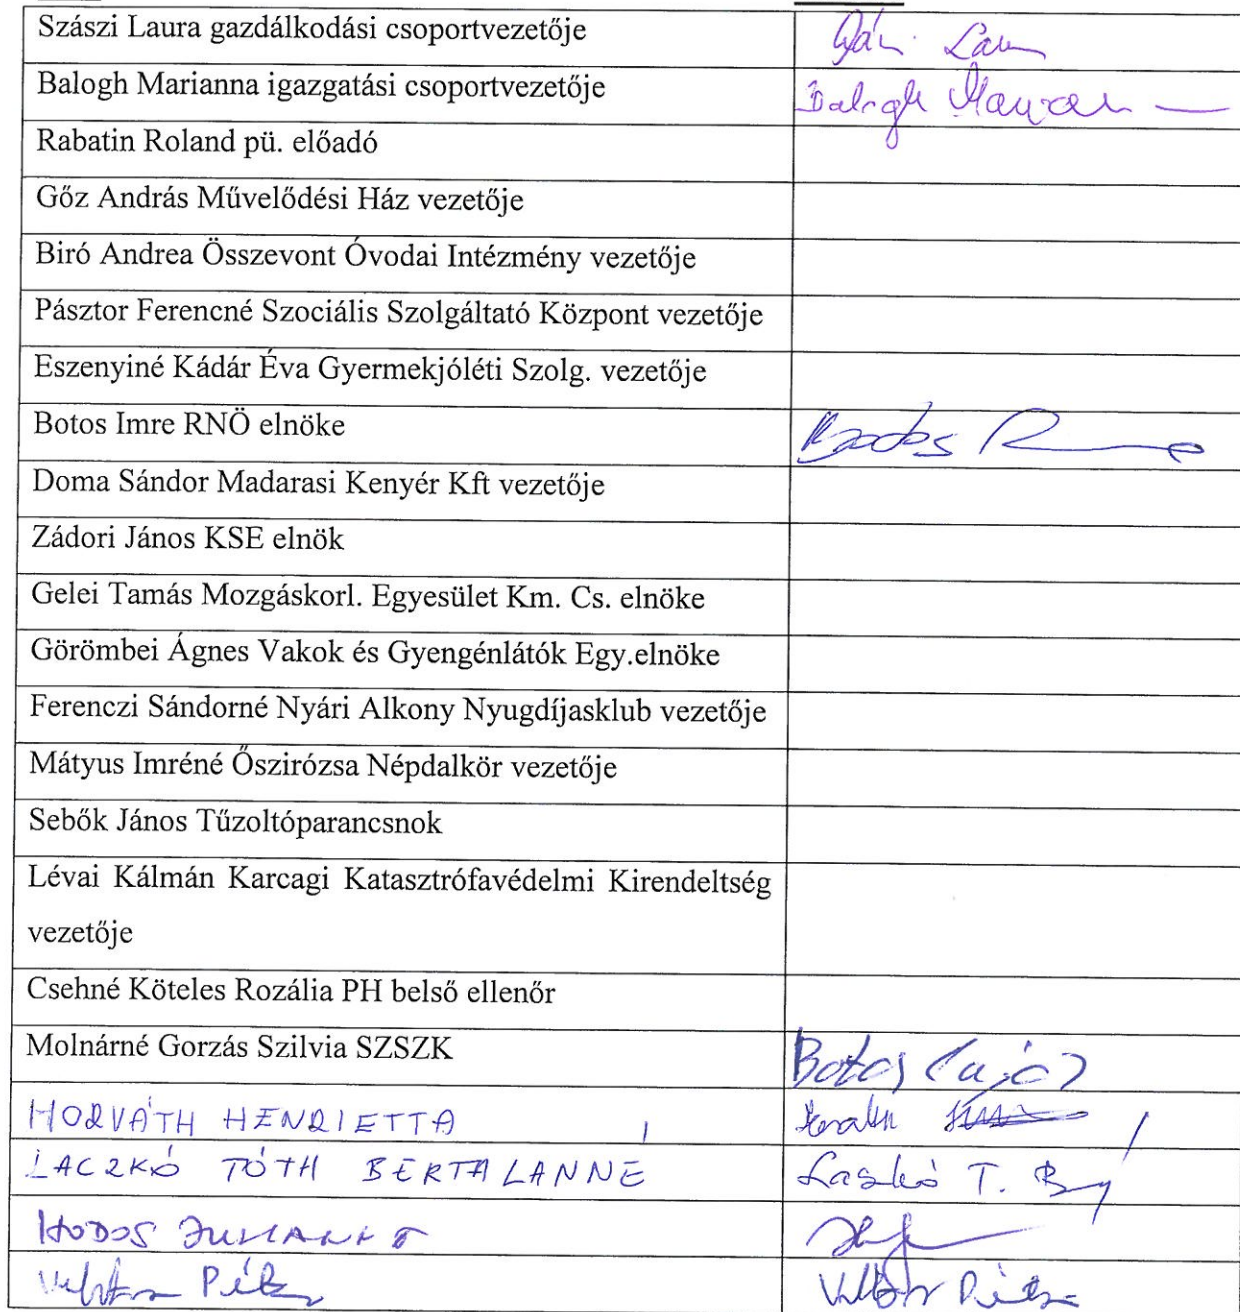 Szászi Laura gazdálkodási csoportvezetője
Balogh Marianna igazgatási csoportvezetője Balogh
Rabatin Roland pü. előadó
Gőz András Művelődési Ház vezetője
Biró Andrea Összevont Óvodai Intézmény vezetője
Pásztor Ferencné Szociális Szolgáltató Központ vezetője
Eszenyiné Kádár Éva Gyermekjóléti Szolg. vezetője
Botos Imre RNÖ elnöke
Doma Sándor Madarasi Kenyér Kft vezetője
Zádori János KSE elnök
Gelei Tamás Mozgáskorl. Egyesület Km. Cs. elnöke
Görömbei Ágnes Vakok és Gyengénlátók Egy.elnöke
Ferenczi Sándorné Nyári Alkony Nyugdíjasklub vezetője
Mátyus Imréné Őszirózsa Népdalkör vezetője
Sebők János Tűzoltóparancsnok
Lévai Kálmán Karcagi Katasztrófavédelmi Kirendeltség
vezetője
Csehné Köteles Rozália PH belső ellenőr
Molnárné Gorzás Szilvia SZSZK Botos Lajos
HORVÁTH HENRIETTA
LACZKÓ TÓTH BERTALANNÉ Laczkó T. B
HODOS
Péter